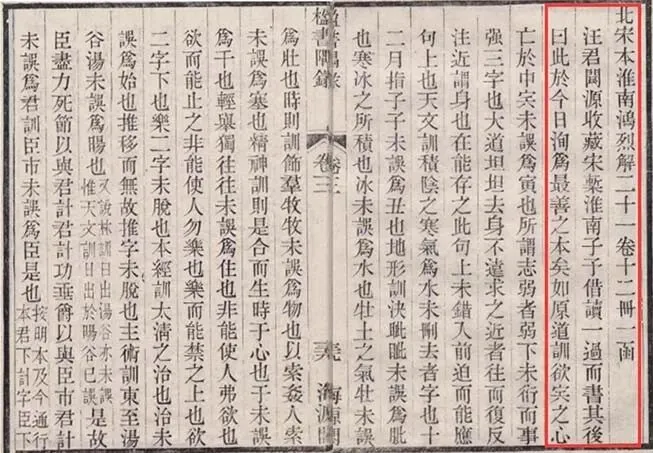 北宋本淮南鴻烈解二十一卷十二冊一函
汪君閬源收藏宋槧淮南子予借讀一過而書其後
曰此於今日洵為最善之本矣如原道訓欲宍之心
亡於中宍未誤為寅也所謂志弱者弱下未衍而事
强三字也大道坦坦去身不遠求之近者往而復反
注近謂身也在能存之此句上未錯入前迫而能應
句上也天文訓積陰之寒氣為水未刪去者字也十
二月指子子未誤為丑也地形訓決眦眦未誤為
也寒冰之所積也冰未誤為水也牡土之氣牡未誤
楹書隅錄 卷三 海源閣
為壯也時則訓飭羣牧牧未誤為物也以索姦人索
未誤為塞也精神訓則是合而生時于心也于未誤
為干也輕舉獨往往未誤為住也非能使人弗欲也
欲而能止之非能使人勿樂也樂而能禁之上也欲
二字下也樂二字未脫也本經訓太清之治也治未
誤為始也推移而無故推字未脫也主術訓東至湯
谷湯未誤為暘也
又說林訓日出湯谷亦未誤
惟天文訓日出於暘谷已誤
是故
臣盡力死節以與君計君計功垂爵以與臣市君計
未誤為君訓臣市未誤為臣是也
按明本及今通行
本君下計字臣下